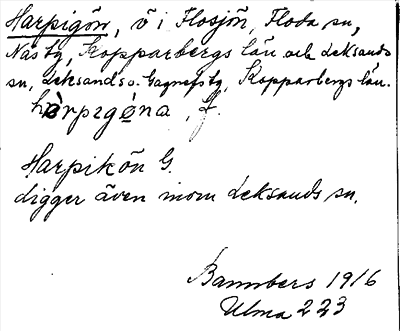 Harpigön, ö i Flosjön, Floda sn,
Nås tg, Kopparbergs län och Leksands
sn, Leksands o. Gagnefs tg, Kopparbergs län.
hàrpigø̀na, f.
Harpikön G.
digger även inom Leksands sn.
Bannbers 1916
Ulma 223